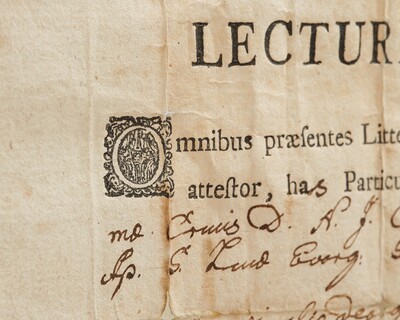 LECTUR
Omnibus præsentes Litte
attestor, has Particu
mæ Crucis D. N. J. C
Ap. S. Lucæ Evang. S